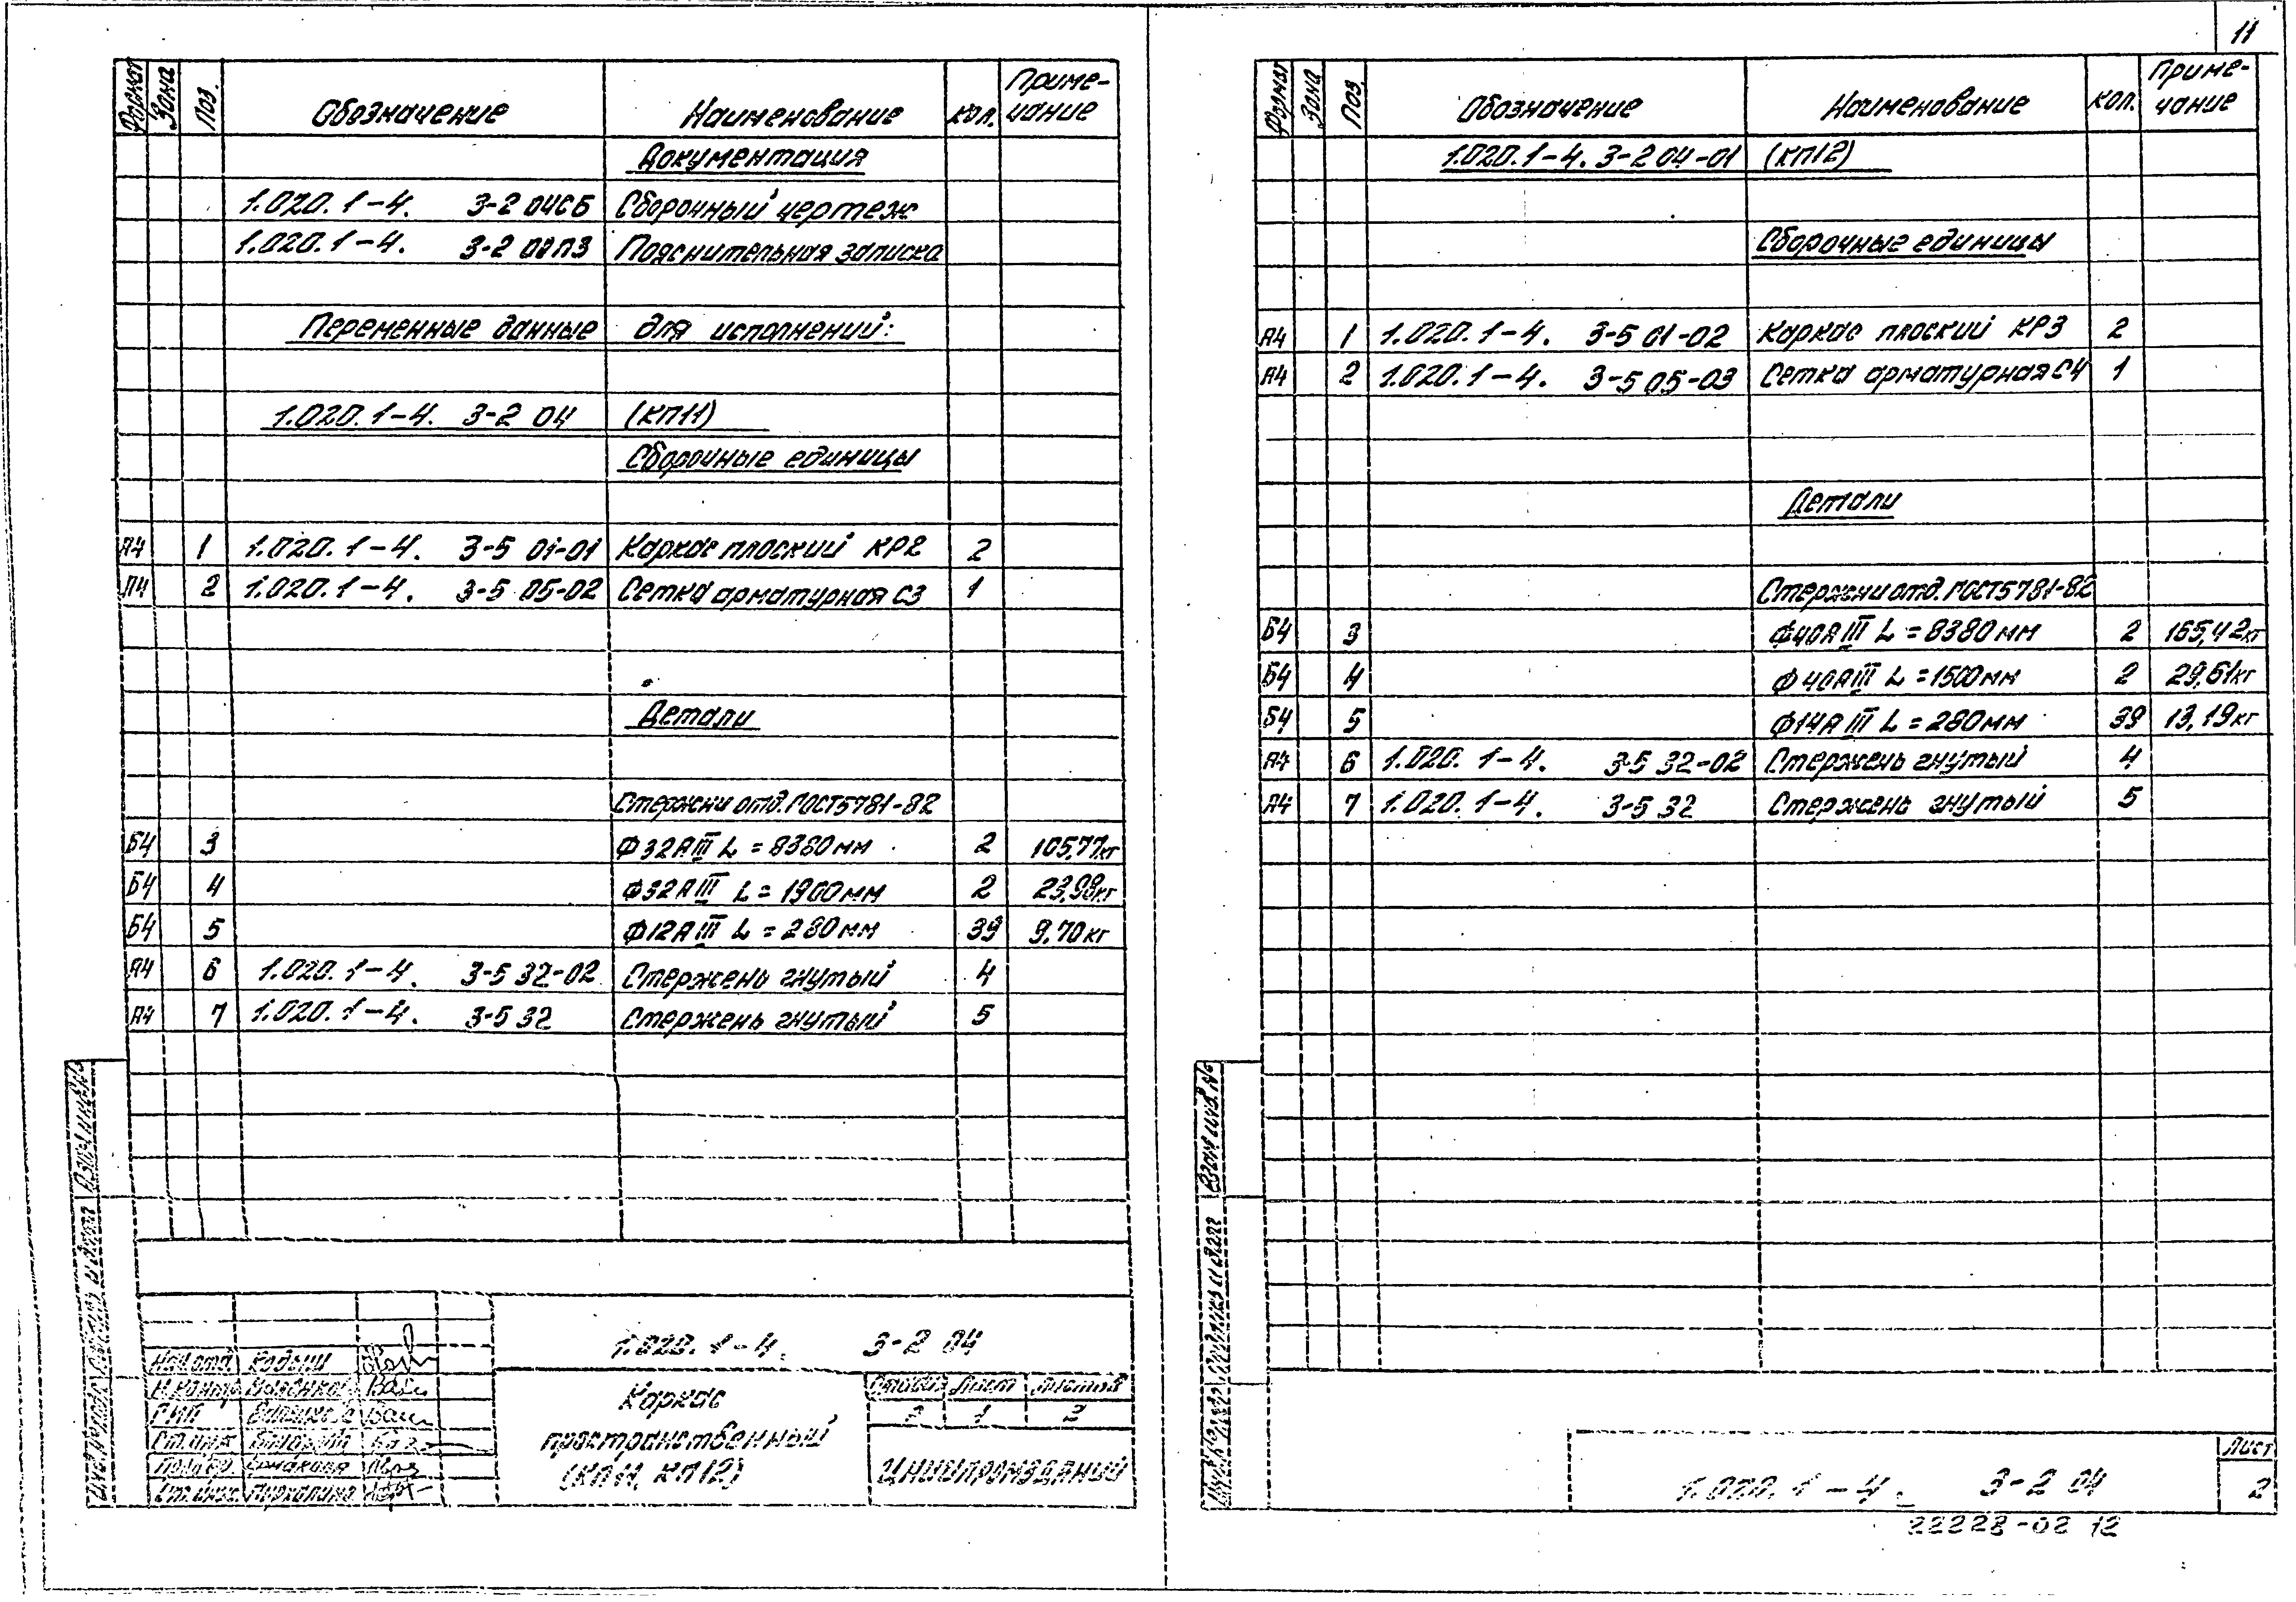 11
Формат Зона Поз. Обозначение Наименование кол. Приме-
чание
Документация
1.020.1-4. 3-2 04СБ Сборочный чертеж
1.020.1-4. 3-2 00ПЗ Пояснительная записка
Переменные данные для исполнений:
1.020.1-4. 3-2 04 (КП11)
Сборочные единицы
А4 1 1.020.1-4. 3-5 01-01 Каркас плоский КР2 2
А4 2 1.020.1-4. 3-5 05-02 Сетка арматурная С3 1
Детали
Стержни отд. ГОСТ5781-82
Б4 3 Ф32АIII L=8380мм 2 105,77кг
Б4 4 Ф32АIII L=1900мм 2 23,98кг
Б4 5 Ф12АIII L=280мм 39 9,70кг
А4 6 1.020.1-4. 3-5 32-02 Стержень гнутый 4
А4 7 1.020.1-4. 3-5 32 Стержень гнутый 5
1.020.1-4. 3-2 04
Нач.отд
Н.контр
ГИП
Ст.инж
Каркас
пространственный
(КП11, КП12)
Стадия Лист Листов
Р 1 2
ЦНИИПРОМЗДАНИЙ
Формат Зона Поз. Обозначение Наименование кол. Приме-
чание
1.020.1-4. 3-2 04-01 (КП12)
Сборочные единицы
А4 1 1.020.1-4. 3-5 01-02 Каркас плоский КР3 2
А4 2 1.020.1-4. 3-5 05-03 Сетка арматурная С4 1
Детали
Стержни отд. ГОСТ5781-82
Б4 3 Ф40АIII L=8380мм 2 165,42кг
Б4 4 Ф40АIII L=1500мм 2 29,61кг
Б4 5 Ф14АIII L=280мм 39 13,19кг
А4 6 1.020.1-4. 3-5 32-02 Стержень гнутый 4
А4 7 1.020.1-4. 3-5 32 Стержень гнутый 5
Взам.инв.№
Подпись и дата
1.020.1-4. 3-2 04
Лист
2
22228-02 12